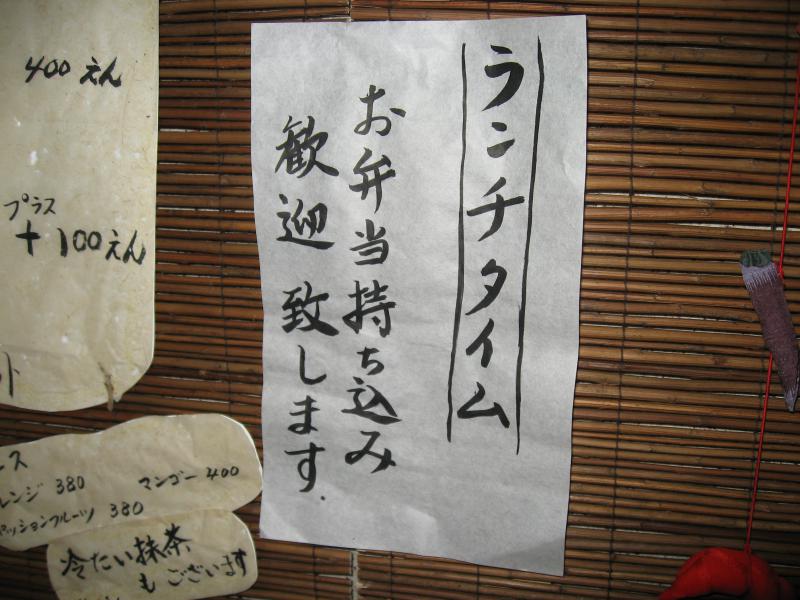 ランチタイム
お弁当持ち込み
歓迎致します.
400えん
プラス
+100えん
ト
ース
レンジ 380 マンゴー 400
パッションフルーツ 380
冷たい抹茶
もございます